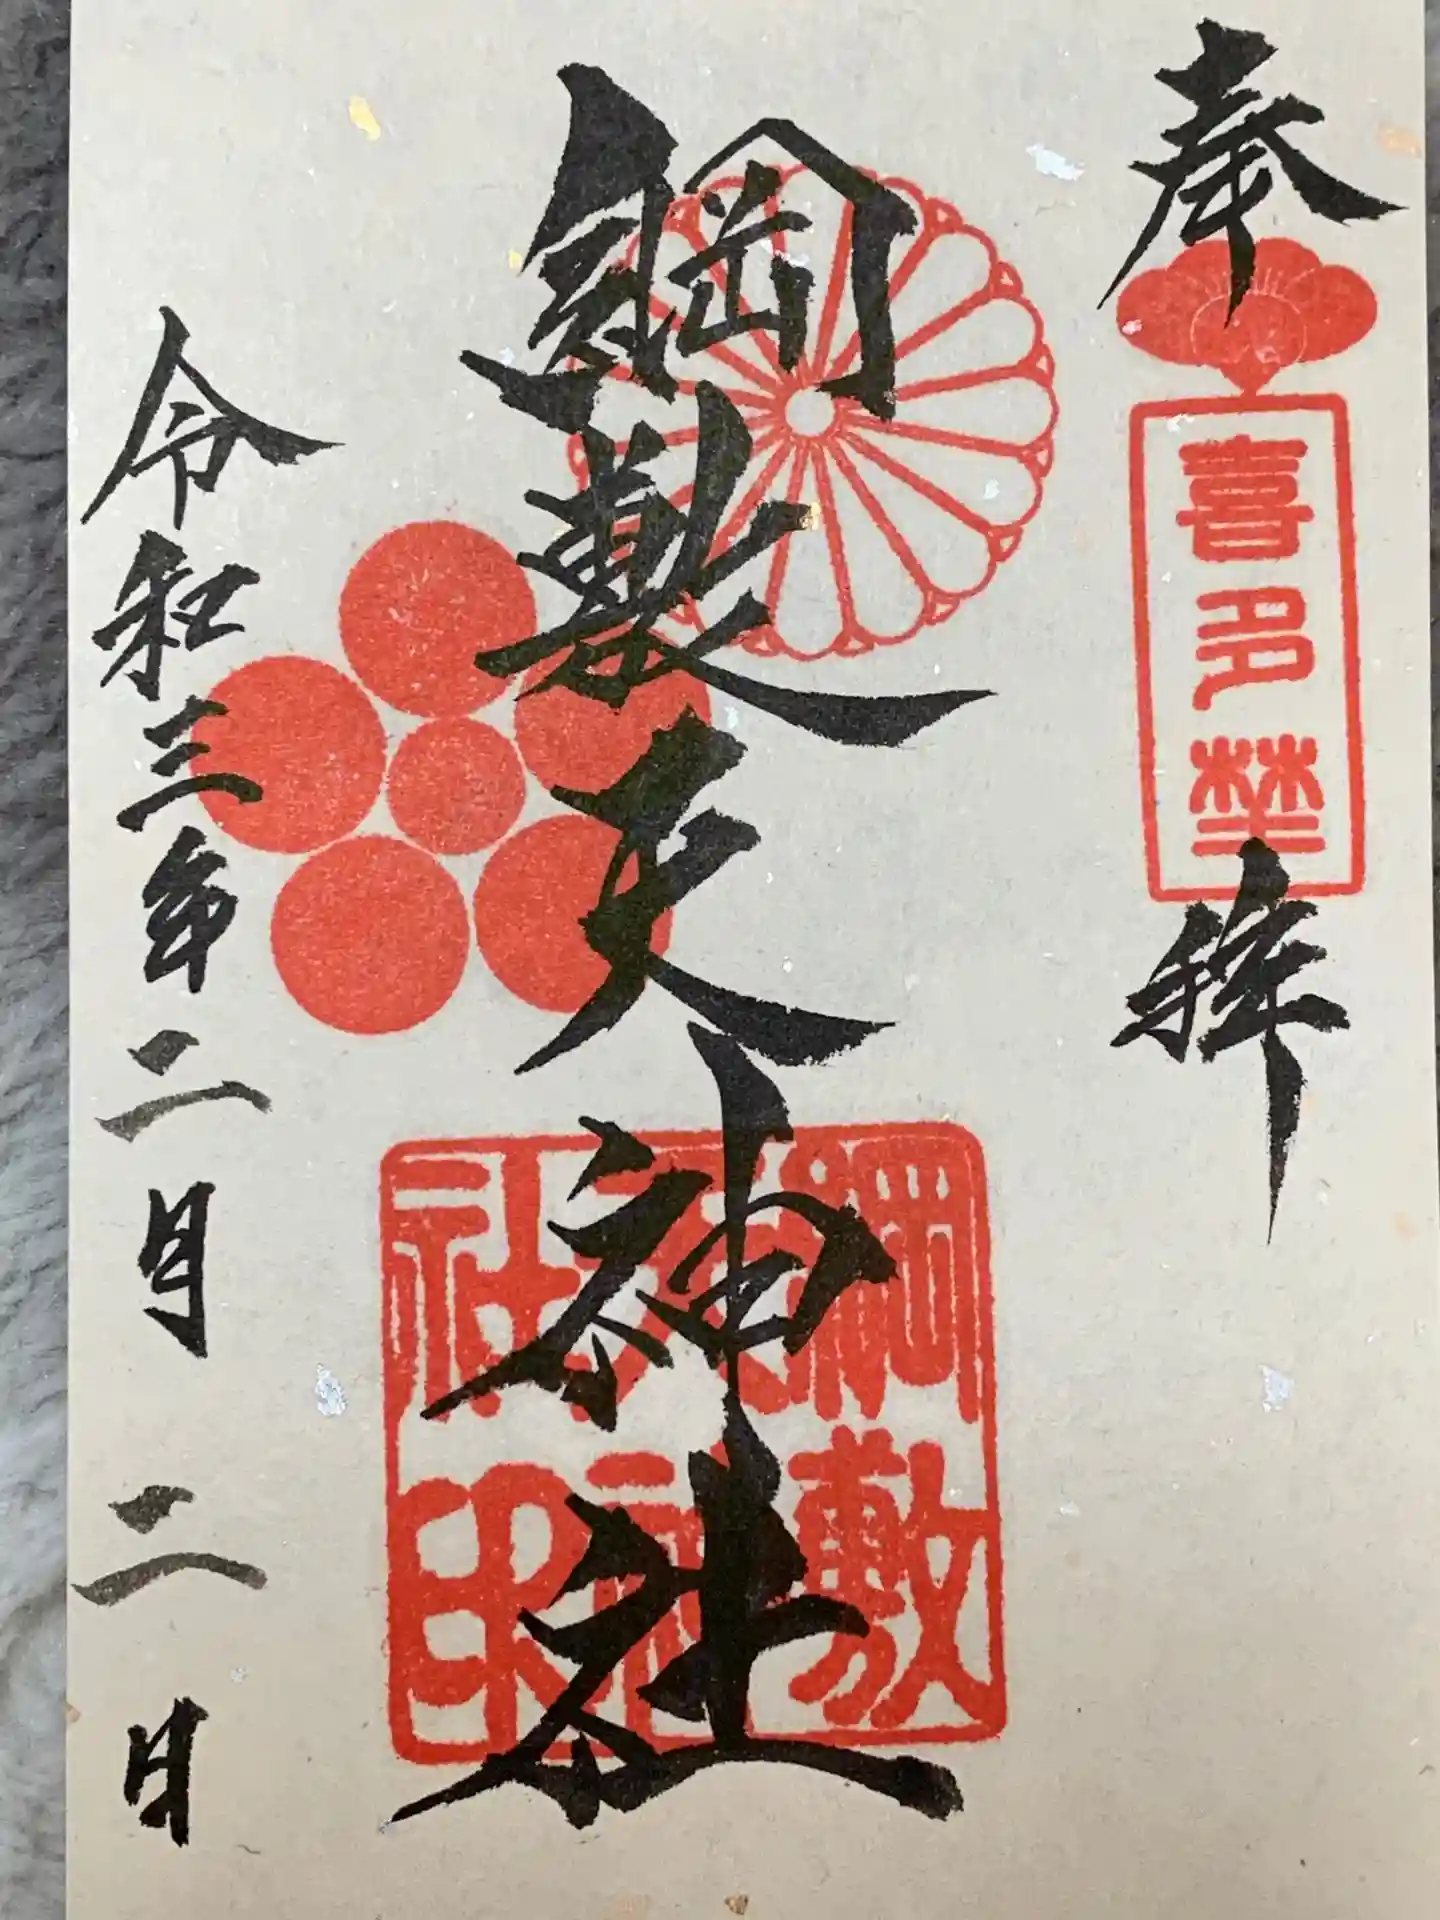 奉拝
喜多埜
綱敷天神社
綱敷天神社印
令和三年二月二日